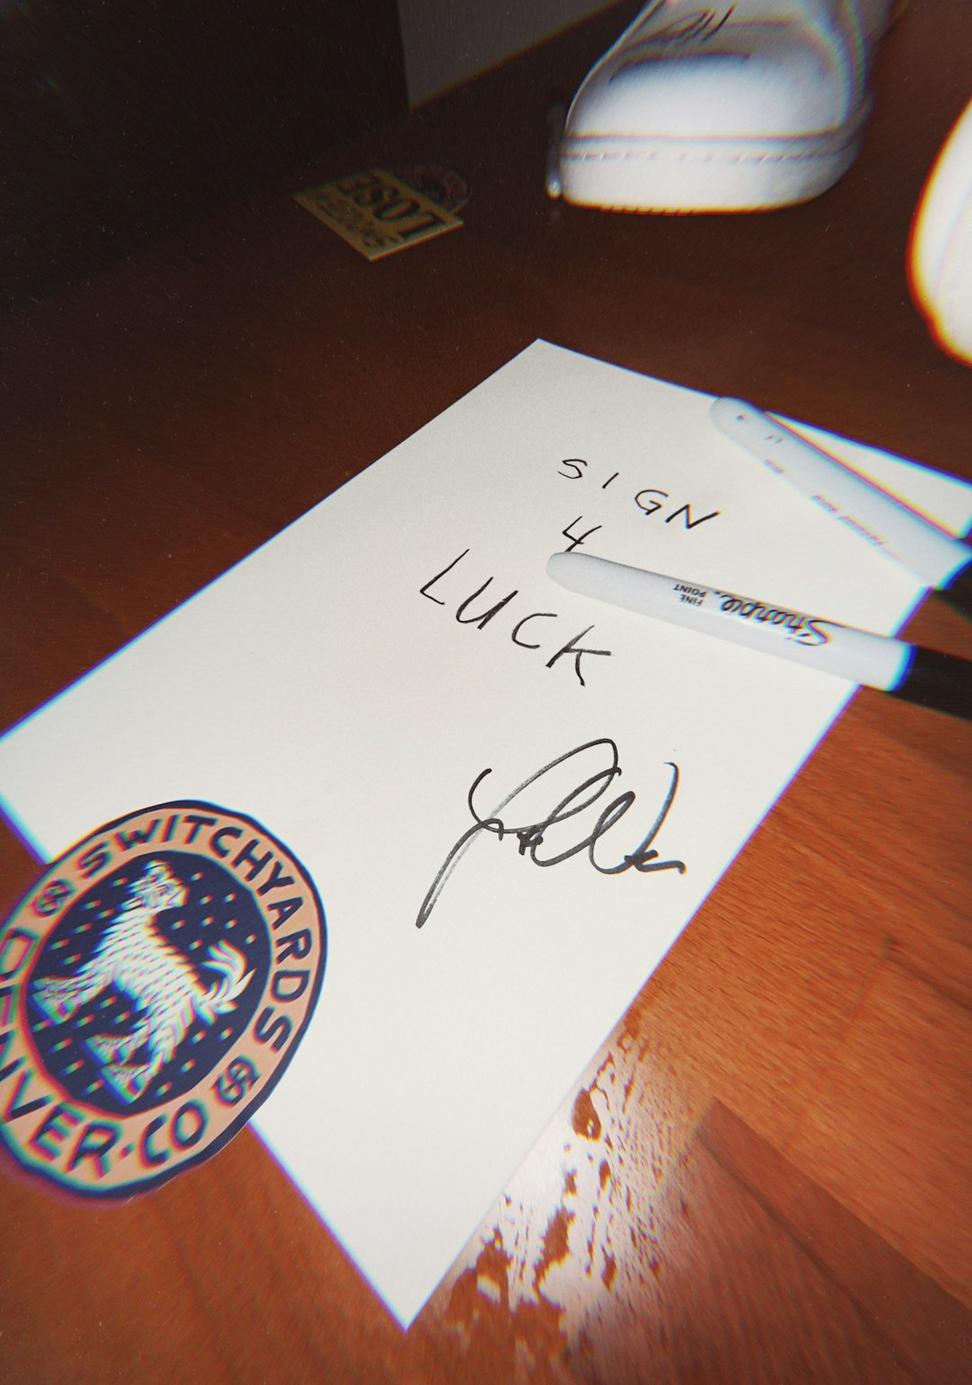 SIGN
4
LUCK
Sharpie
FINE
POINT
SWITCHYARDS
DENVER·CO
LOSE